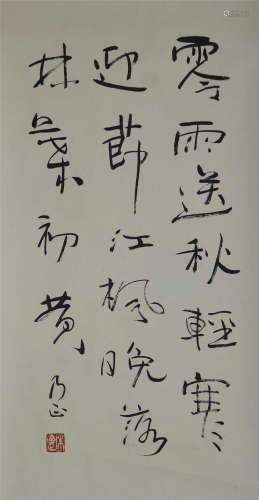 零雨送秋輕寒
迎節江楓晚落
林葉初黄
乃正